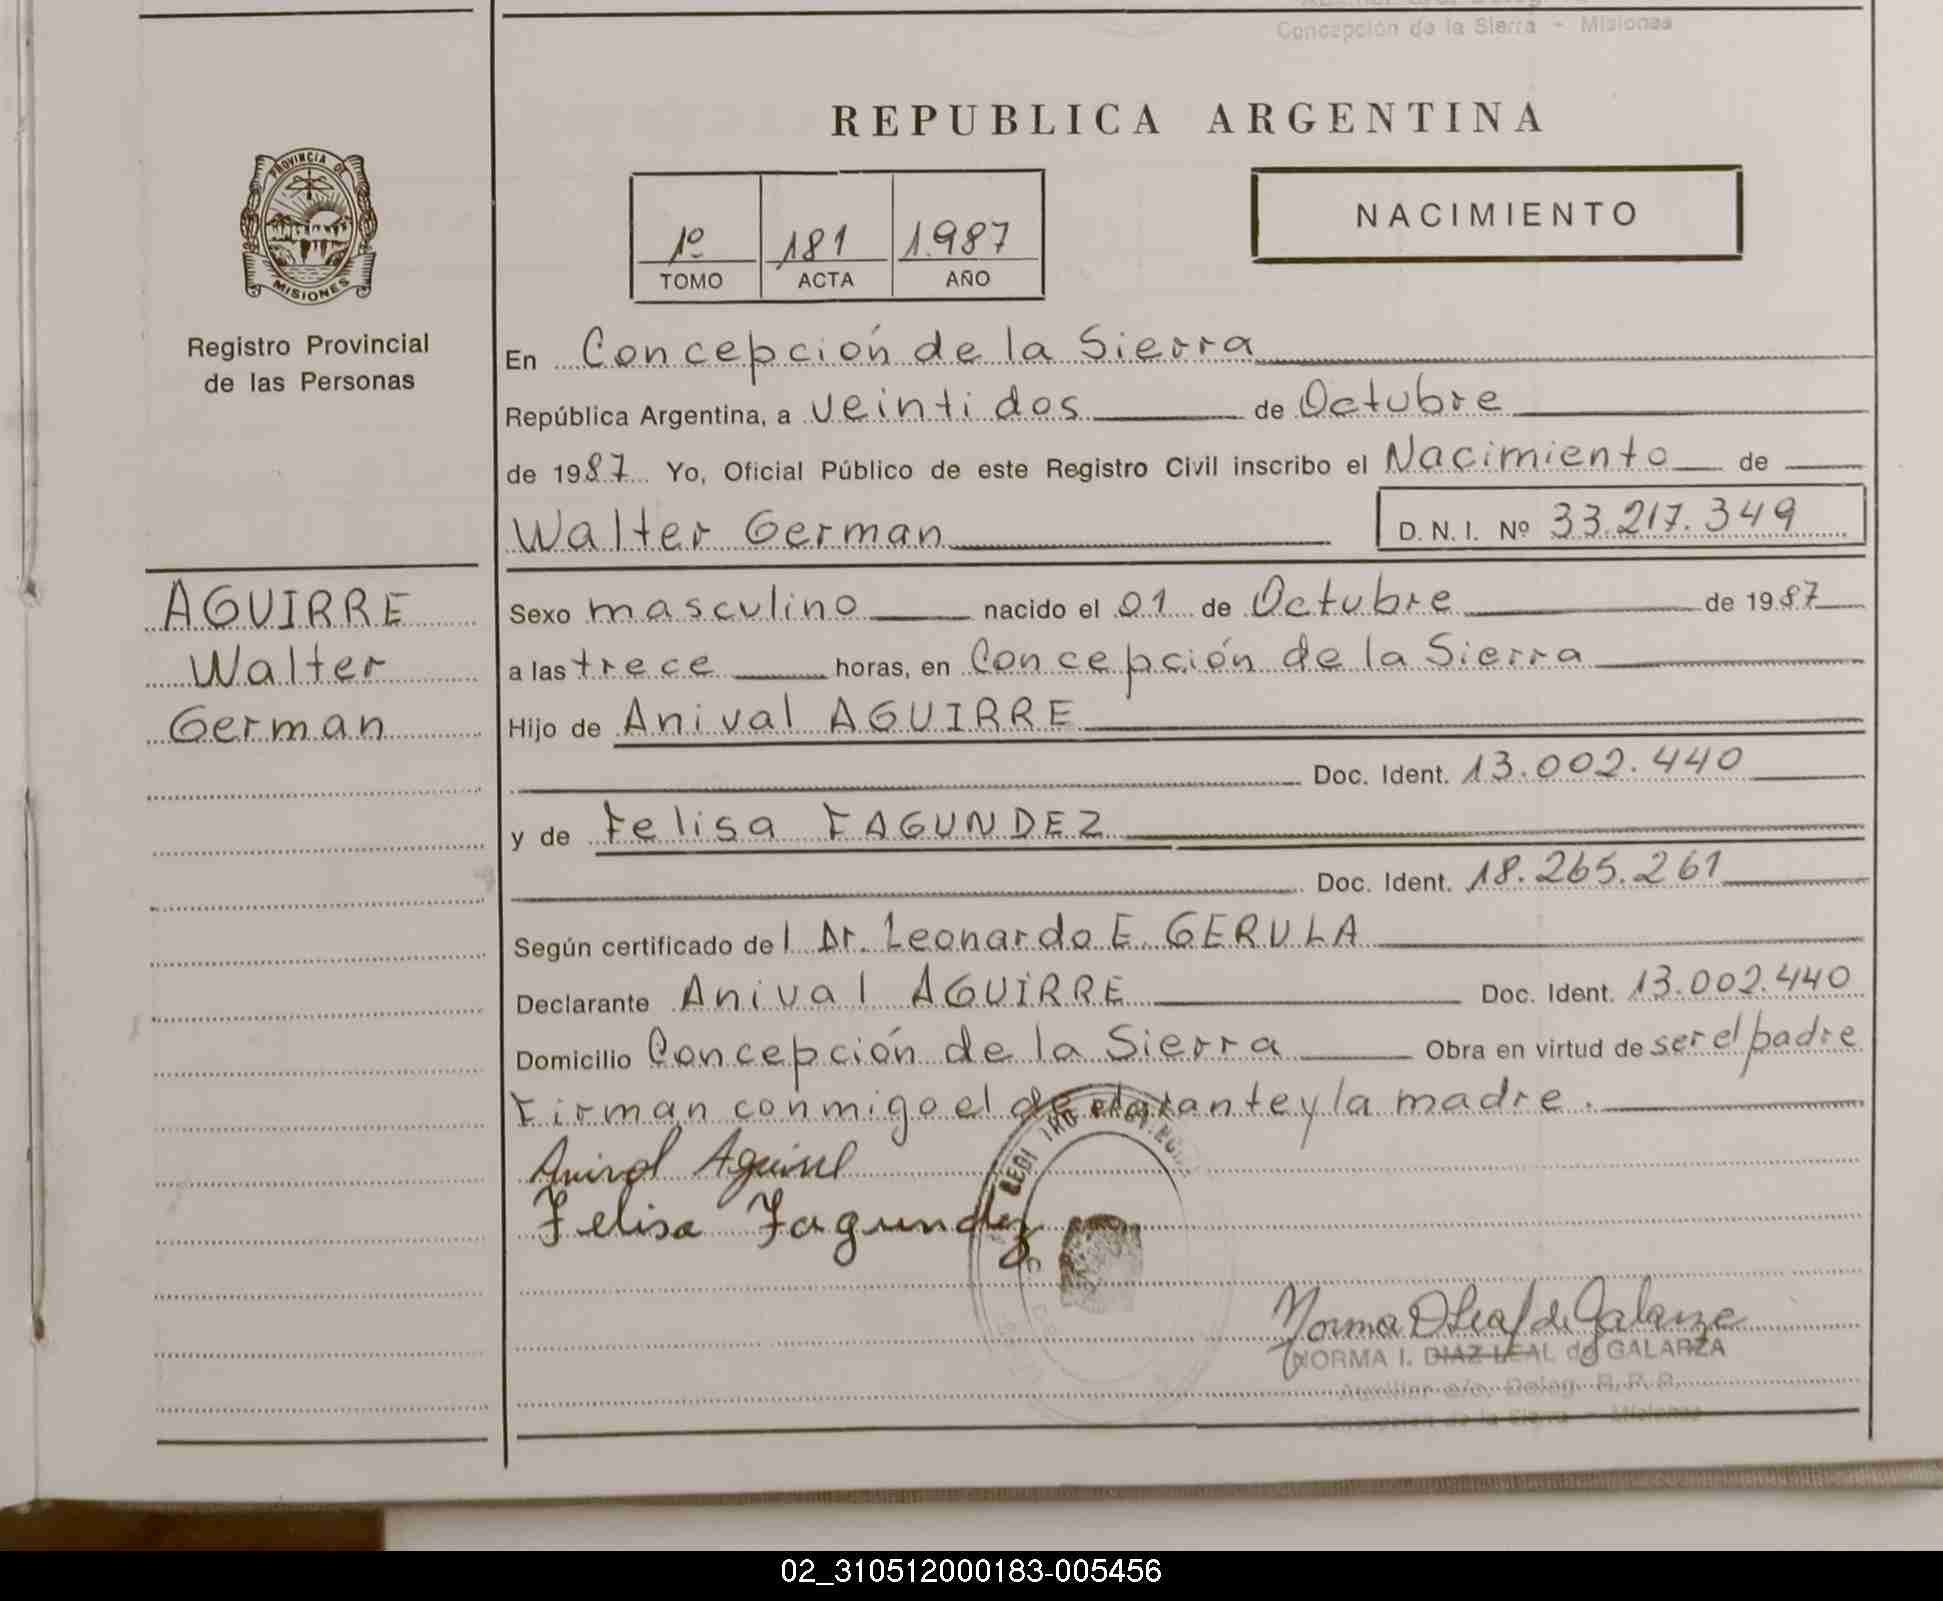 Concepción de la Sierra - Misiones
REPUBLICA ARGENTINA
PROVINCIA DE
MISIONES
Registro Provincial
de las Personas
1º 181 1.987
TOMO ACTA AÑO
NACIMIENTO
En Concepción de la Sierra
República Argentina, a veinti dos de Octubre
de 1987. Yo, Oficial Público de este Registro Civil inscribo el Nacimiento de
Walter German D. N. I. Nº 33.217.349
AGUIRRE
Walter
German
Sexo masculino nacido el 01 de Octubre de 1987
a las trece horas, en Concepción de la Sierra
Hijo de Anival AGUIRRE
Doc. Ident. 13.002.440
y de Felisa FAGUNDEZ
Doc. Ident. 18.265.261
Según certificado del Dr. Leonardo E. GERULA
Declarante Anival AGUIRRE Doc. Ident. 13.002.440
Domicilio Concepción de la Sierra Obra en virtud de ser el padre
Firman conmigo el declarante y la madre.
Anival Aguirre
Felisa Fagundez
Norma D Leal de Galarza
NORMA I. DIAZ LEAL de GALARZA
Auxiliar a/c. Deleg. R. P. P.
Concepción de la Sierra - Misiones
02_310512000183-005456